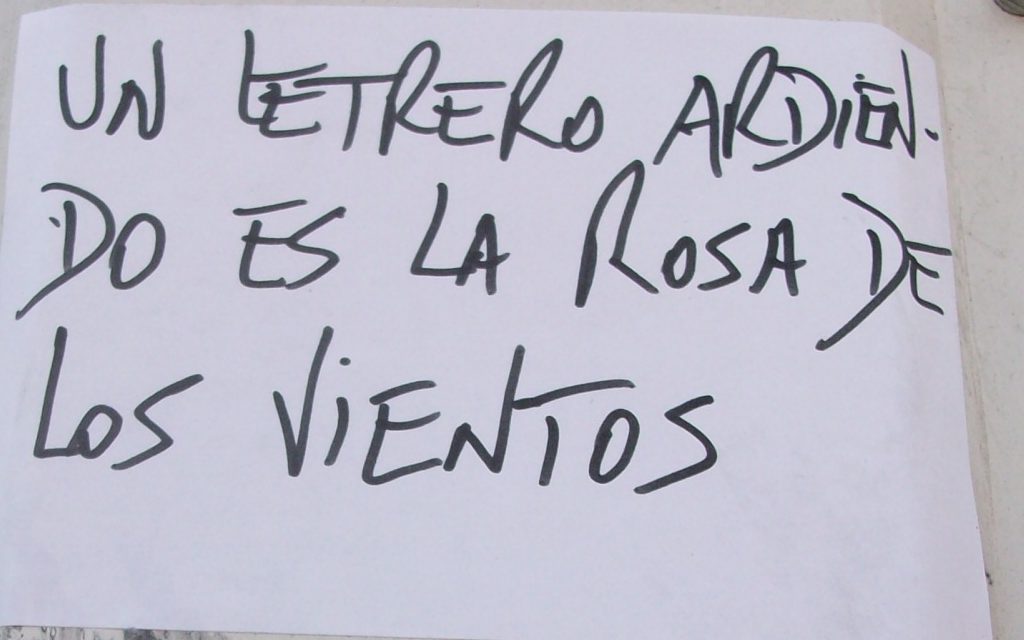 UN LETRERO ARDIEN-
DO ES LA ROSA DE
LOS ViENTOS